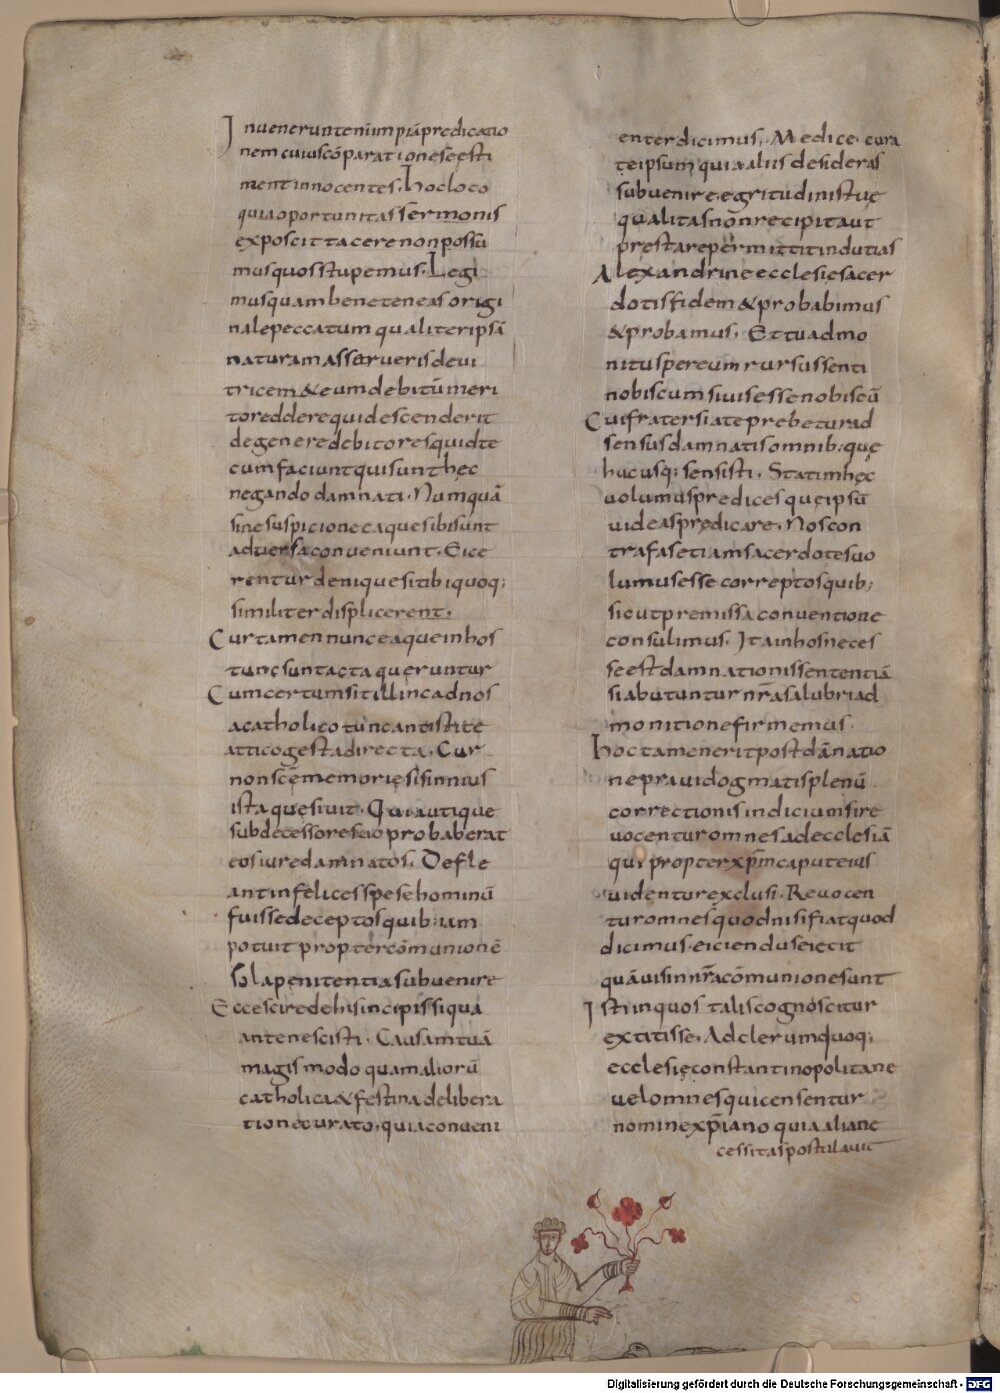 Inueneruntenimimpiāpredicatio
nemcuiuscōparationeseesti
mentinnocentes. hocloco
quiaoportunitassermonis
exposcittacerenonpossu
musquosstupemus. Legi
musquambeneteneasorigi
nalepeccatumqualiteripsā
naturamasserueris devi
tricem &eumdebitūmeri
toreddere quidescenderit
degeneredebitoresquidte
cumfaciuntquisunthęc
negandodamnati. Numquā
sinesuspicioneeaquesibisunt
aduersaconueniunt. Eice
renturdeniquesitibiquoq;
similiterdisplicerent.
Curtamennunceaqueinhos
tuncsuntactaqueruntur
Cumcertumsitillincadnos
acatholicotuncantistite
atticogestadirecta. Cur
nonscēmemoriesisinnius
istaquęsiuit. Quiautique
subdecessoresuoprobaberat
eosiuredamnatos. Defle
antinfelicesspesehominū
fuissedeceptosquib:iam
potuit proptercōmunionē
solapenitentiasubuenire
Eccesciredehisincipissiqua
antenescisti. Causamtuā
magismodoquamaliorū
catholica&festinadelibera
tionecurato. quiaconueni
enterdicimus. Medice. cura
teipsum quiaaliisdesideras
subuenireegritudinistuę
qualitasnōnrecipitaut
prestarepermittitindutias
Alexandrineecclesiesacer
dotisfidem&probabimus
&probamus. Ettuadmo
nituspereumrursussenti
nobiscumsiuisessenobiscū
Cuifratersiateprebeturad
sensusdamnatisomnib:quę
hucusq; sensisti. Statimhęc
uolumuspredicesqueipsū
uideasprędicare. Noscon
trafasetiamsacerdotesuo
lumusessecorreptosquib;
sicutpremissaconuentione
consulimus. Itainhosneces
seestdamnationissententiā
siabutuntur nr̄asalubriad
monitionefirmemus.
hoctameneritpostdānatio
nepravidogmatisplenū
correctionisindiciumsire
uocenturomnesadecclesiā
quipropterxp̄mcaputeius
uidenturexclusi. Reuocen
turomnesquodnisifiatquod
dicimus. eiciendus eiecit
quāuisinnr̄acōmunionesunt
Istiinquos taliscognoscitur
extitisse. Adclerumquoq;
ecclesięconstantinopolitane
uelomnesquicensentur
nominexp̄iano quiaaliane
cessitaspostulauit
Digitalisierung gefördert durch die Deutsche Forschungsgemeinschaft - DFG